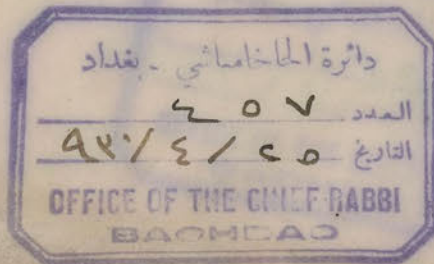 دائرة الحاخامباشي - بغداد
العدد ٤٥٧
التاريخ ٢٥ / ٤ / ٩٣٠
OFFICE OF THE CHIEF-RABBI
BAGHDAD